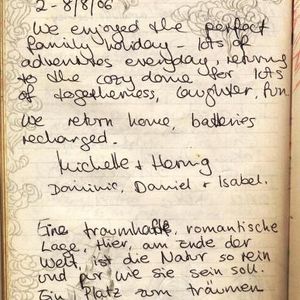 2-8/8/06
We enjoyed the perfect
family holiday - lots of
adventures everyday, returning
to the cozy dome for lots
of togetherness, laughter, fun
We return home, batteries
recharged.
Michelle + Hennig
Dominic, Daniel + Isabel.
Eine traumhafte, romantische
Lage. Hier, am Ende der
Welt, ist die Natur so rein
und pur wie sie sein soll.
Ein Platz zum träumen